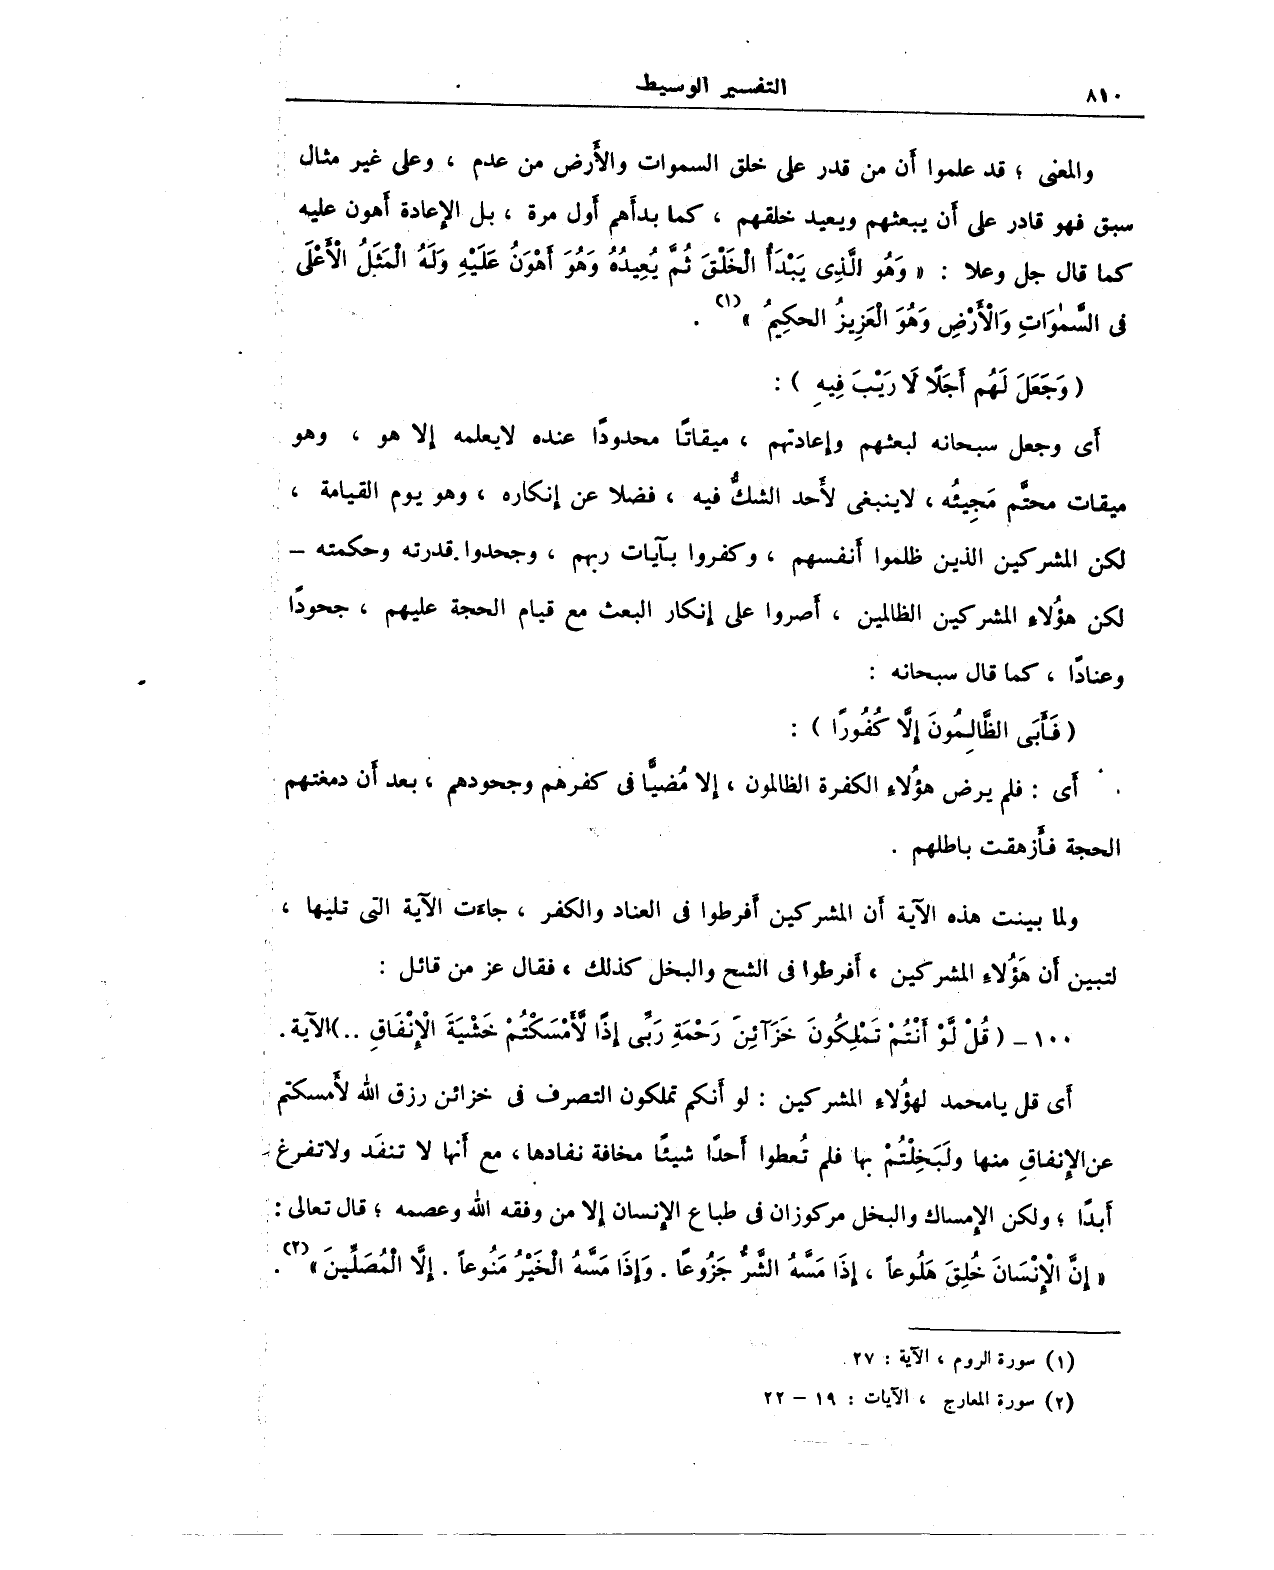 ٨١٠
التفسير الوسيط
والمعنى ؛ قد علموا أن من قدر على خلق السموات والأرض من عدم ، وعلى غير مثال
سبق فهو قادر على أن يبعثهم ويعيد خلقهم ، كما بدأهم أول مرة ، بل الإعادة أهون عليه
كما قال جل وعلا : « وَهُو الَّذِى يَبْدَأُ الْخَلْقَ ثُمَّ يُعِيدُهُ وَهُوَ أَهْوَنُ عَلَيْهِ وَلَهُ الْمَثَلُ الْأَعْلَى
فى السَّمٰوَاتِ وَالْأَرْضِ وَهُوَ الْعَزِيزُ الحكِيمُ »(١) .
( وَجَعَلَ لَهُم أَجَلًا لَا رَيْبَ فِيهِ ) :
أى وجعل سبحانه لبعثهم وإعادتهم ، ميقاتًا محدودًا عنده لايعلمه إلا هو ، وهو
ميقات محتَّم مَجِيئُه ، لاينبغى لأحد الشكُّ فيه ، فضلا عن إنكاره ، وهو يوم القيامة ،
لكن المشركين الذين ظلموا أنفسهم ، وكفروا بآيات ربهم ، وجحدوا قدرته وحكمته –
لكن هؤُلاءِ المشركين الظالمين ، أصروا على إنكار البعث مع قيام الحجة عليهم ، جحودًا
وعنادًا ، كما قال سبحانه :
( فَأَبَى الظَّالِمُونَ إِلَّا كُفُورًا ) :
أى : فلم يرض هؤُلاءِ الكفرة الظالمون ، إلا مُضيًّا فى كفرهم وجحودهم ، بعد أن دمغتهم
الحجة فأزهقت باطلهم .
ولما بينت هذه الآية أن المشركين أفرطوا فى العناد والكفر ، جاءت الآية التى تليها ،
لتبين أن هَؤُلاءِ المشركين ، أفرطوا فى الشح والبخل كذلك ، فقال عز من قائل :
١٠٠ – ( قُلْ لَّوْ أَنْتُمْ تَمْلِكُونَ خَزَآئِنَ رَحْمَةِ رَبِّى إِذًا لَّأَمْسَكْتُمْ خَشْيَةَ الْإِنْفَاقِ ..)الآية .
أى قل يامحمد لهؤُلاءِ المشركين : لو أنكم تملكون التصرف فى خزائن رزق الله لأمسكتم
عن الإنفاقِ منها ولَبَخِلْتُمْ بها فلم تُعطوا أحدًا شيئًا مخافة نفادها ، مع أنها لا تنفَد ولاتفرغ
أبدًا ؛ ولكن الإمساك والبخل مركوزان فى طباع الإنسان إلا من وفقه الله وعصمه ؛ قال تعالى :
« إِنَّ الْإِنْسَانَ خُلِقَ هَلُوعاً ، إِذَا مَسَّهُ الشَّرُّ جَزُوعًا . وَإِذَا مَسَّهُ الْخَيْرُ مَنُوعاً . إِلَّا الْمُصَلِّينَ »(٢) .
(١) سورة الروم ، الآية : ٢٧
(٢) سورة المعارج ، الآيات : ١٩ – ٢٢